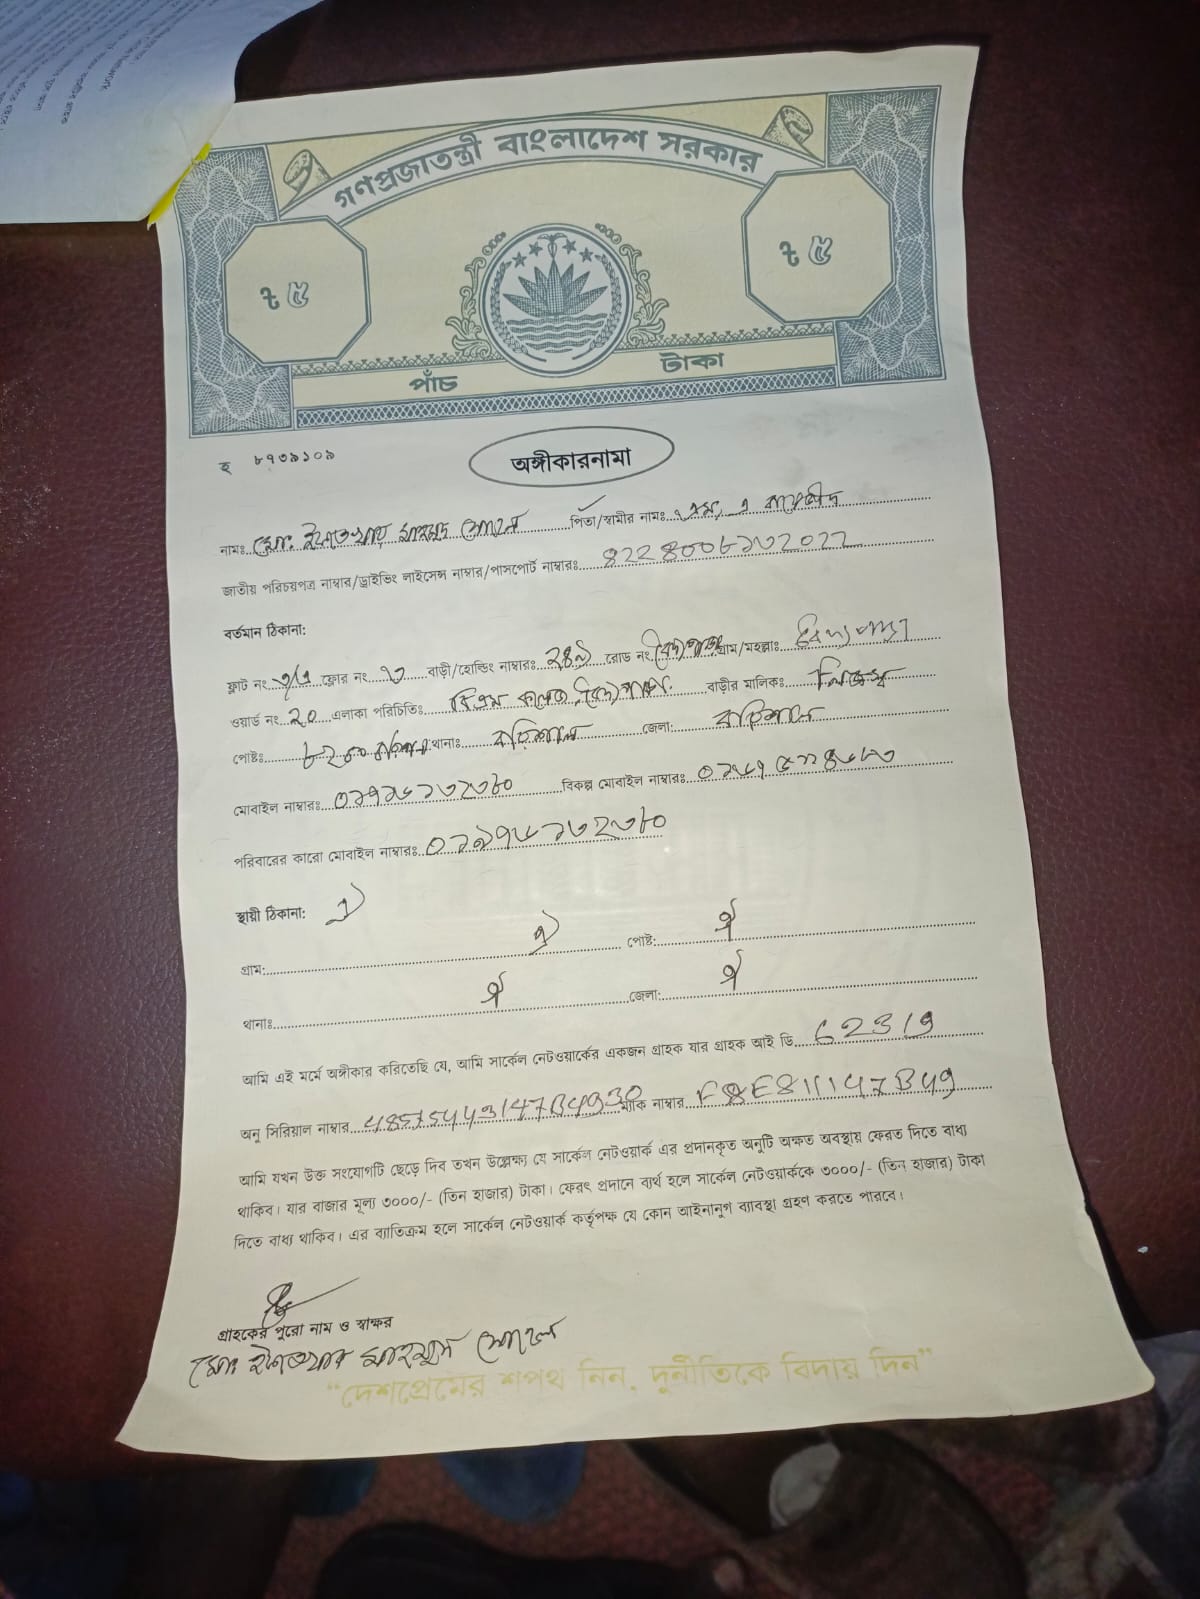 গণপ্রজাতন্ত্রী বাংলাদেশ সরকার
৳ ৫
৳ ৫
পাঁচ টাকা
হ ৮৭৩৯১০৯
অঙ্গীকারনামা
নামঃ মোঃ মাহমুদ সোহেল পিতা/স্বামীর নামঃ এম, এ
জাতীয় পরিচয়পত্র নাম্বার/ড্রাইভিং লাইসেন্স নাম্বার/পাসপোর্ট নাম্বারঃ
বর্তমান ঠিকানা:
ফ্লাট নং ফ্লোর নং ৩ বাড়ী/হোল্ডিং নাম্বারঃ রোড নং গ্রাম/মহল্লাঃ
ওয়ার্ড নং ২০ এলাকা পরিচিতিঃ বি এম কলেজ বাড়ীর মালিকঃ নিজস্ব
পোষ্টঃ থানাঃ বরিশাল জেলা: বরিশাল
মোবাইল নাম্বারঃ বিকল্প মোবাইল নাম্বারঃ
পরিবারের কারো মোবাইল নাম্বারঃ
স্থায়ী ঠিকানা: ঐ
গ্রাম: ঐ পোষ্ট: ঐ
থানাঃ ঐ জেলা: ঐ
আমি এই মর্মে অঙ্গীকার করিতেছি যে, আমি সার্কেল নেটওয়ার্কের একজন গ্রাহক যার গ্রাহক আই ডি 62319
অনু সিরিয়াল নাম্বার 485754431147B49930 ম্যাক নাম্বার
আমি যখন উক্ত সংযোগটি ছেড়ে দিব তখন উল্লেক্ষ্য যে সার্কেল নেটওয়ার্ক এর প্রদানকৃত অনুটি অক্ষত অবস্থায় ফেরত দিতে বাধ্য
থাকিব। যার বাজার মূল্য ৩০০০/- (তিন হাজার) টাকা। ফেরৎ প্রদানে ব্যর্থ হলে সার্কেল নেটওয়ার্ককে ৩০০০/- (তিন হাজার) টাকা
দিতে বাধ্য থাকিব। এর ব্যাতিক্রম হলে সার্কেল নেটওয়ার্ক কর্তৃপক্ষ যে কোন আইনানুগ ব্যাবস্থা গ্রহণ করতে পারবে।
গ্রাহকের পুরো নাম ও স্বাক্ষর
মোঃ মাহমুদ সোহেল
“দেশপ্রেমের শপথ নিন, দুর্নীতিকে বিদায় দিন”